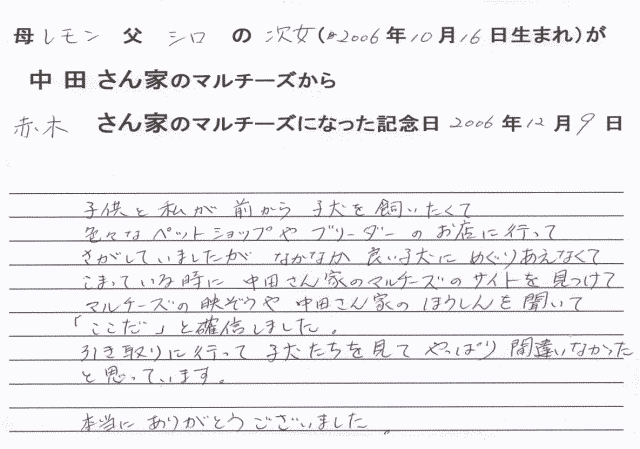 母 レモン 父 シロ の 次女(2006年10月16日生まれ)が
中田さん家のマルチーズから
赤木 さん家のマルチーズになった記念日 2006年12月9日
子供と私が前から子犬を飼いたくて
色々なペットショップやブリーダーのお店に行って
さがしていましたがなかなか良い子犬にめぐりあえなくて
こまっている時に中田さん家のマルチーズのサイトを見つけて
マルチーズの映ぞうや中田さん家のほうしんを聞いて
「ここだ」と確信しました。
引き取りに行って子犬たちを見てやっぱり間違いなかった
と思っています。
本当にありがとうございました。